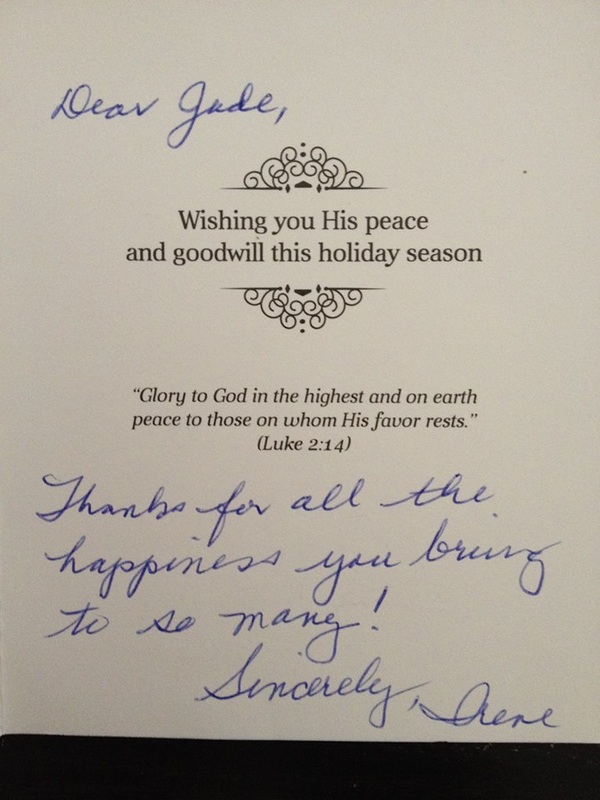 Dear Jude,
Wishing you His peace
and goodwill this holiday season
“Glory to God in the highest and on earth
peace to those on whom His favor rests.”
(Luke 2:14)
Thanks for all the
happiness you bring
to so many!
Sincerely, Irene